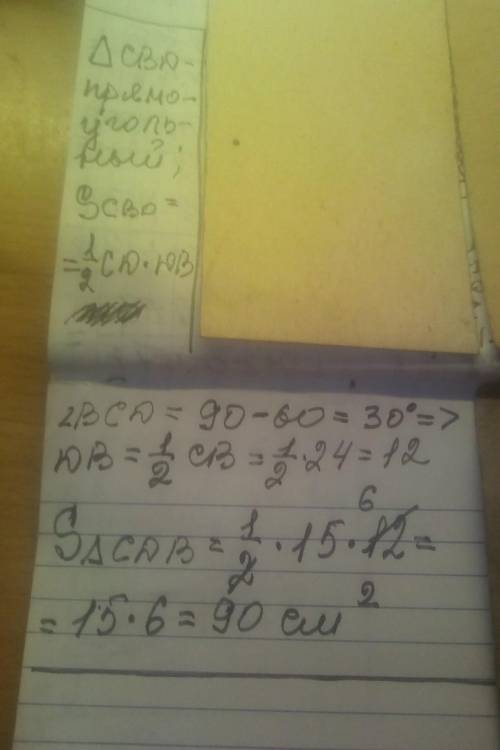 ΔCBD-
прямо-
уголь-
ный;
S CBD =
= 1/2 CD · DB
∠BCD = 90 - 60 = 30° =>
DB = 1/2 CB = 1/2 · 24 = 12
6
SΔCDB = 1/2 · 15 · 12 =
= 15 · 6 = 90 см²